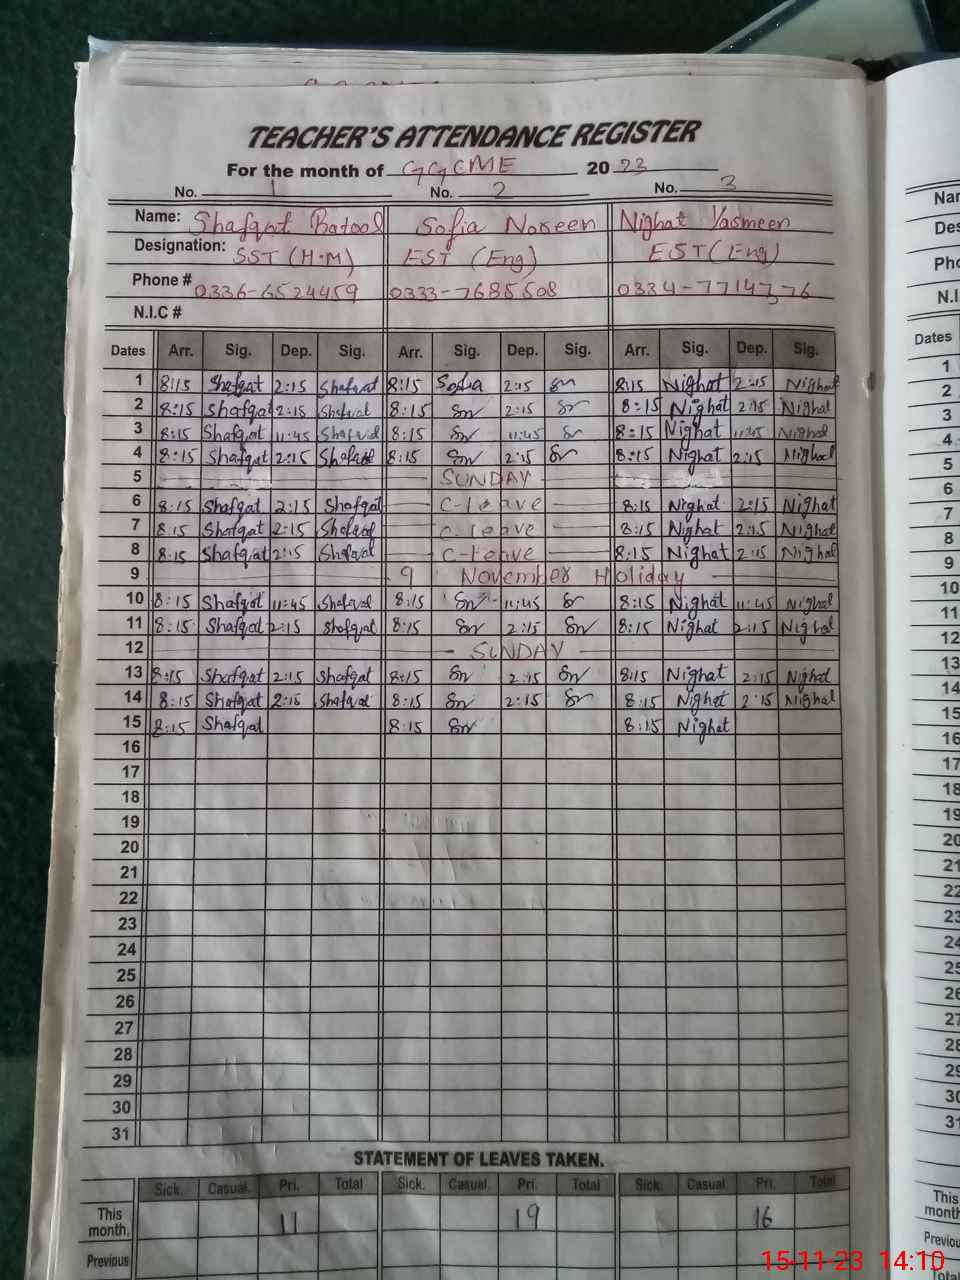 TEACHER'S ATTENDANCE REGISTER
For the month of GGCME 2023
No. 1 No. 2 No. 3
Name: Shafqat Batool Sofia Noreen Nighat Yasmeen
Designation: SST (H.M) EST (Eng) EST (Eng)
Phone # 0336-6524459 0333-7685508 0334-7714376
N.I.C #
Dates Arr. Sig. Dep. Sig. Arr. Sig. Dep. Sig. Arr. Sig. Dep. Sig.
1 8:15 Shafqat 2:15 Shafqat 8:15 Sofia 2:15 Sn 8:15 Nighat 2:15 Nighat
2 8:15 Shafqat 2:15 Shafqat 8:15 Sn 2:15 Sn 8:15 Nighat 2:15 Nighat
3 8:15 Shafqat 11:45 Shafqat 8:15 Sn 11:45 Sn 8:15 Nighat 11:45 Nighat
4 8:15 Shafqat 2:15 Shafqat 8:15 Sn 2:15 Sn 8:15 Nighat 2:15 Nighat
5 SUNDAY
6 8:15 Shafqat 2:15 Shafqat C-Leave 8:15 Nighat 2:15 Nighat
7 8:15 Shafqat 2:15 Shafqat C-Leave 8:15 Nighat 2:15 Nighat
8 8:15 Shafqat 2:15 Shafqat C-Leave 8:15 Nighat 2:15 Nighat
9 9 November Holiday
10 8:15 Shafqat 11:45 Shafqat 8:15 Sn 11:45 Sn 8:15 Nighat 11:45 Nighat
11 8:15 Shafqat 2:15 Shafqat 8:15 Sn 2:15 Sn 8:15 Nighat 2:15 Nighat
12 SUNDAY
13 8:15 Shafqat 2:15 Shafqat 8:15 Sn 2:15 Sn 8:15 Nighat 2:15 Nighat
14 8:15 Shafqat 2:15 Shafqat 8:15 Sn 2:15 Sn 8:15 Nighat 2:15 Nighat
15 8:15 Shafqat 8:15 Sn 8:15 Nighat
16
17
18
19
20
21
22
23
24
25
26
27
28
29
30
31
STATEMENT OF LEAVES TAKEN.
Sick. Casual. Pri. Total Sick. Casual. Pri. Total Sick. Casual Pri. Total
This month. 11 19 16
Previous
Dates
1
2
3
4
5
6
7
8
9
10
11
12
13
14
15
16
17
18
19
20
21
22
23
24
25
26
27
28
29
30
31
This
month
15-11-23 14:10